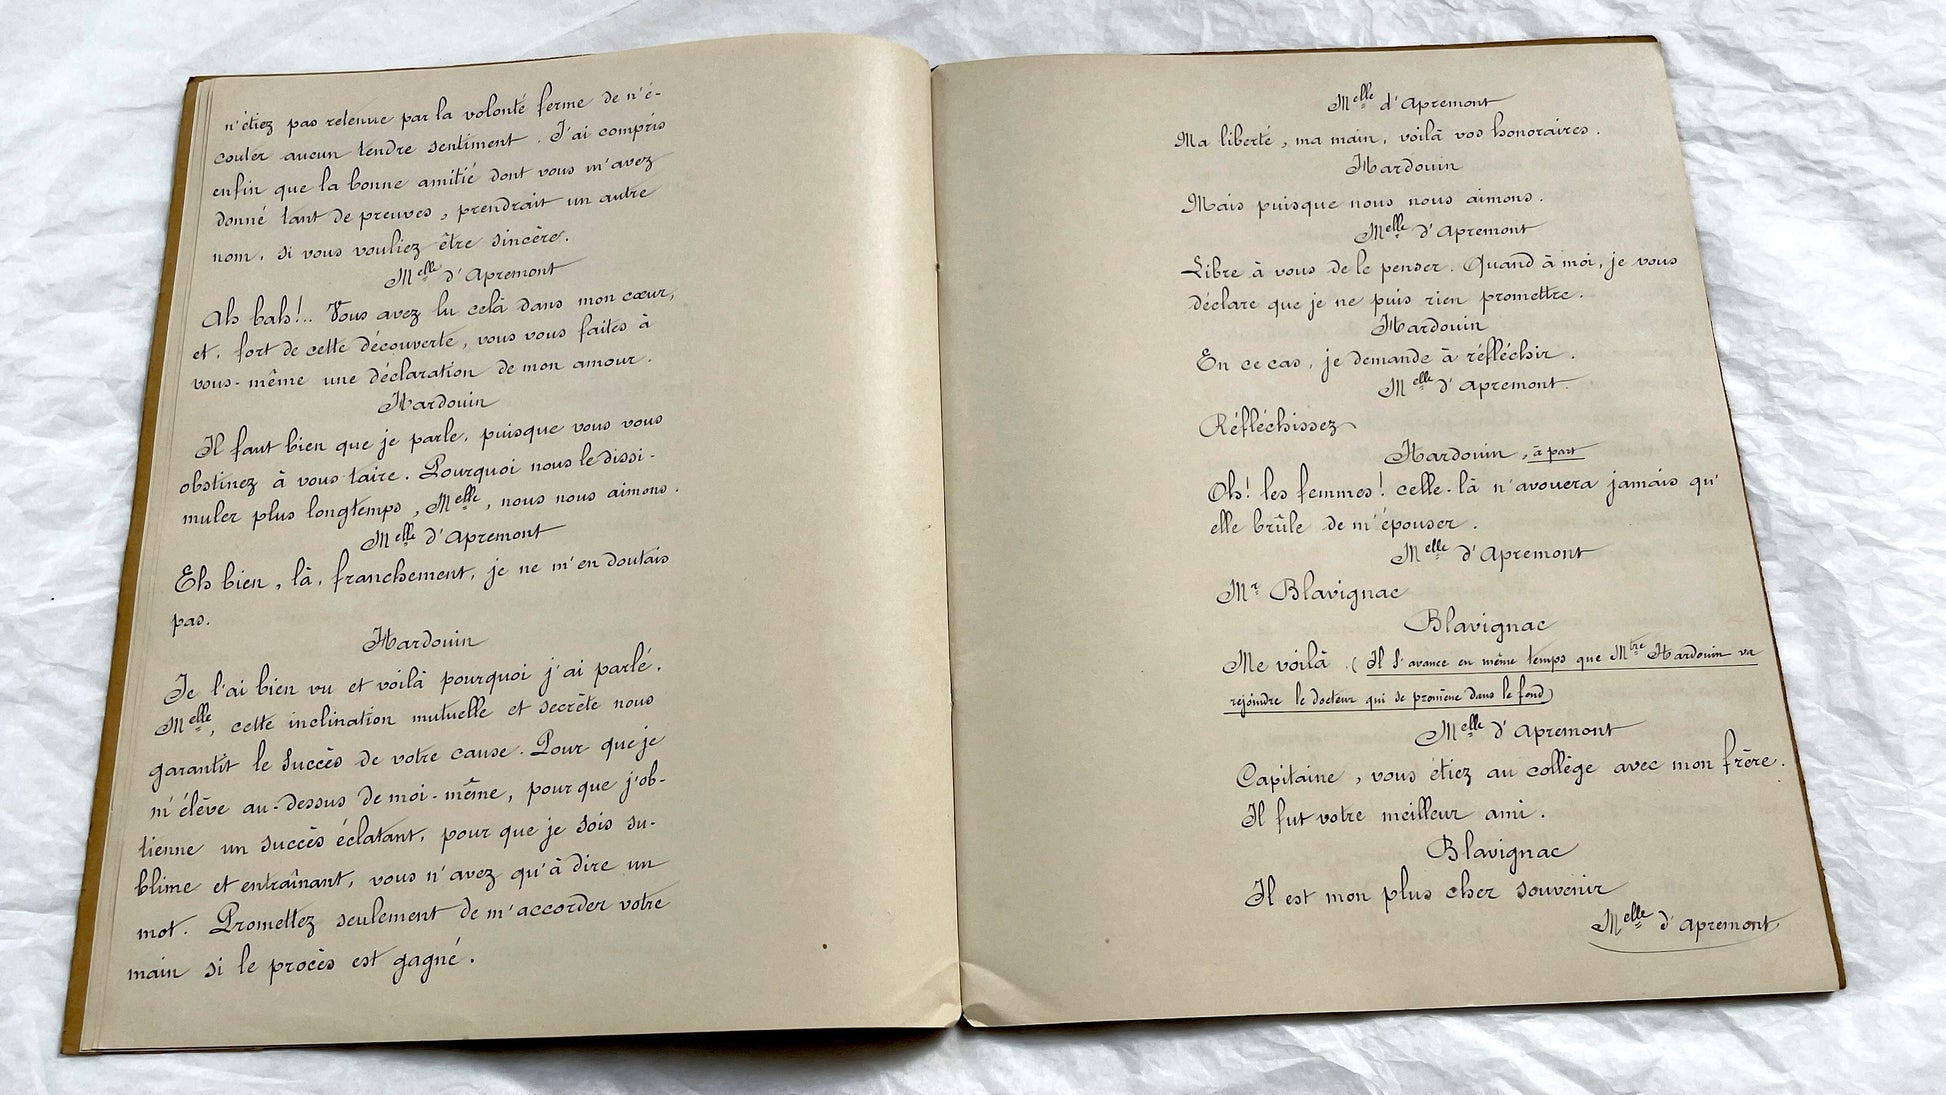 n'étiez pas retenue par la volonté ferme de n'é-
couter aucun tendre sentiment. J'ai compris
enfin que la bonne amitié dont vous m'avez
donné tant de preuves, prendrait un autre
nom, si vous vouliez être sincère.
Melle d'Apremont
Ah bah!.. Vous avez lu celà dans mon cœur,
et, fort de cette découverte, vous vous faites à
vous-même une déclaration de mon amour.
Hardouin
Il faut bien que je parle, puisque vous vous
obstinez à vous taire. Pourquoi nous le dissi-
muler plus longtemps, Melle, nous nous aimons.
Melle d'Apremont
Eh bien, là, franchement, je ne m'en doutais
pas.
Hardouin
Je l'ai bien vu et voilà pourquoi j'ai parlé.
Melle, cette inclination mutuelle et secrète nous
garantit le succès de votre cause. Pour que je
m'élève au-dessus de moi-même, pour que j'ob-
tienne un succès éclatant, pour que je sois su-
blime et entraînant, vous n'avez qu'à dire un
mot. Promettez seulement de m'accorder votre
main si le procès est gagné.
Melle d'Apremont
Ma liberté, ma main, voilà vos honoraires.
Hardouin
Mais puisque nous nous aimons.
Melle d'Apremont
Libre à vous de le penser. Quand à moi, je vous
déclare que je ne puis rien promettre.
Hardouin
En ce cas, je demande à réfléchir.
Melle d'Apremont.
Réfléchissez
Hardouin, à part
Oh! les femmes! celle-là n'avouera jamais qu'
elle brûle de m'épouser.
Melle d'Apremont
Mr Blavignac
Blavignac
Me voilà (Il s'avance en même temps que Mtre Hardouin va
rejoindre le docteur qui se promène dans le fond)
Melle d'Apremont
Capitaine, vous étiez au collège avec mon frère.
Il fut votre meilleur ami.
Blavignac
Il est mon plus cher souvenir
Melle d'Apremont